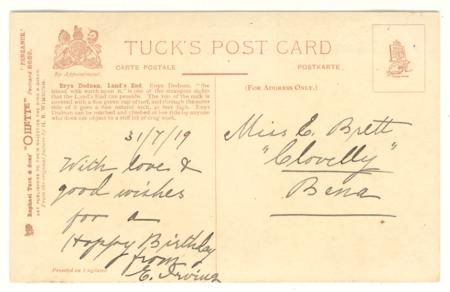 TUCK'S POST CARD
By Appointment.
CARTE POSTALE
POSTKARTE
(FOR ADDRESS ONLY.)
Raphael Tuck & Sons' "OILETTE"
"PENZANCE" Postcard
ART PUBLISHERS TO THEIR MAJESTIES THE KING & QUEEN.
Enys Dodnan, Land's End. Enys Dodnan, "the
island with earth upon it," is one of the strangest sights
that the Land's End can provide. The top of the rock is
covered with a fine green cap of turf, and through the outer
side of it goes a fine natural arch, 40 feet high. Enys
Dodnan can be reached and climbed at low tide by anyone
who does not object to a stiff bit of crag work.
31/7/19
With love &
good wishes
for a
Happy Birthday
from
E. Irving
Miss E. Brett
"Clovelly"
Bena
Printed in England